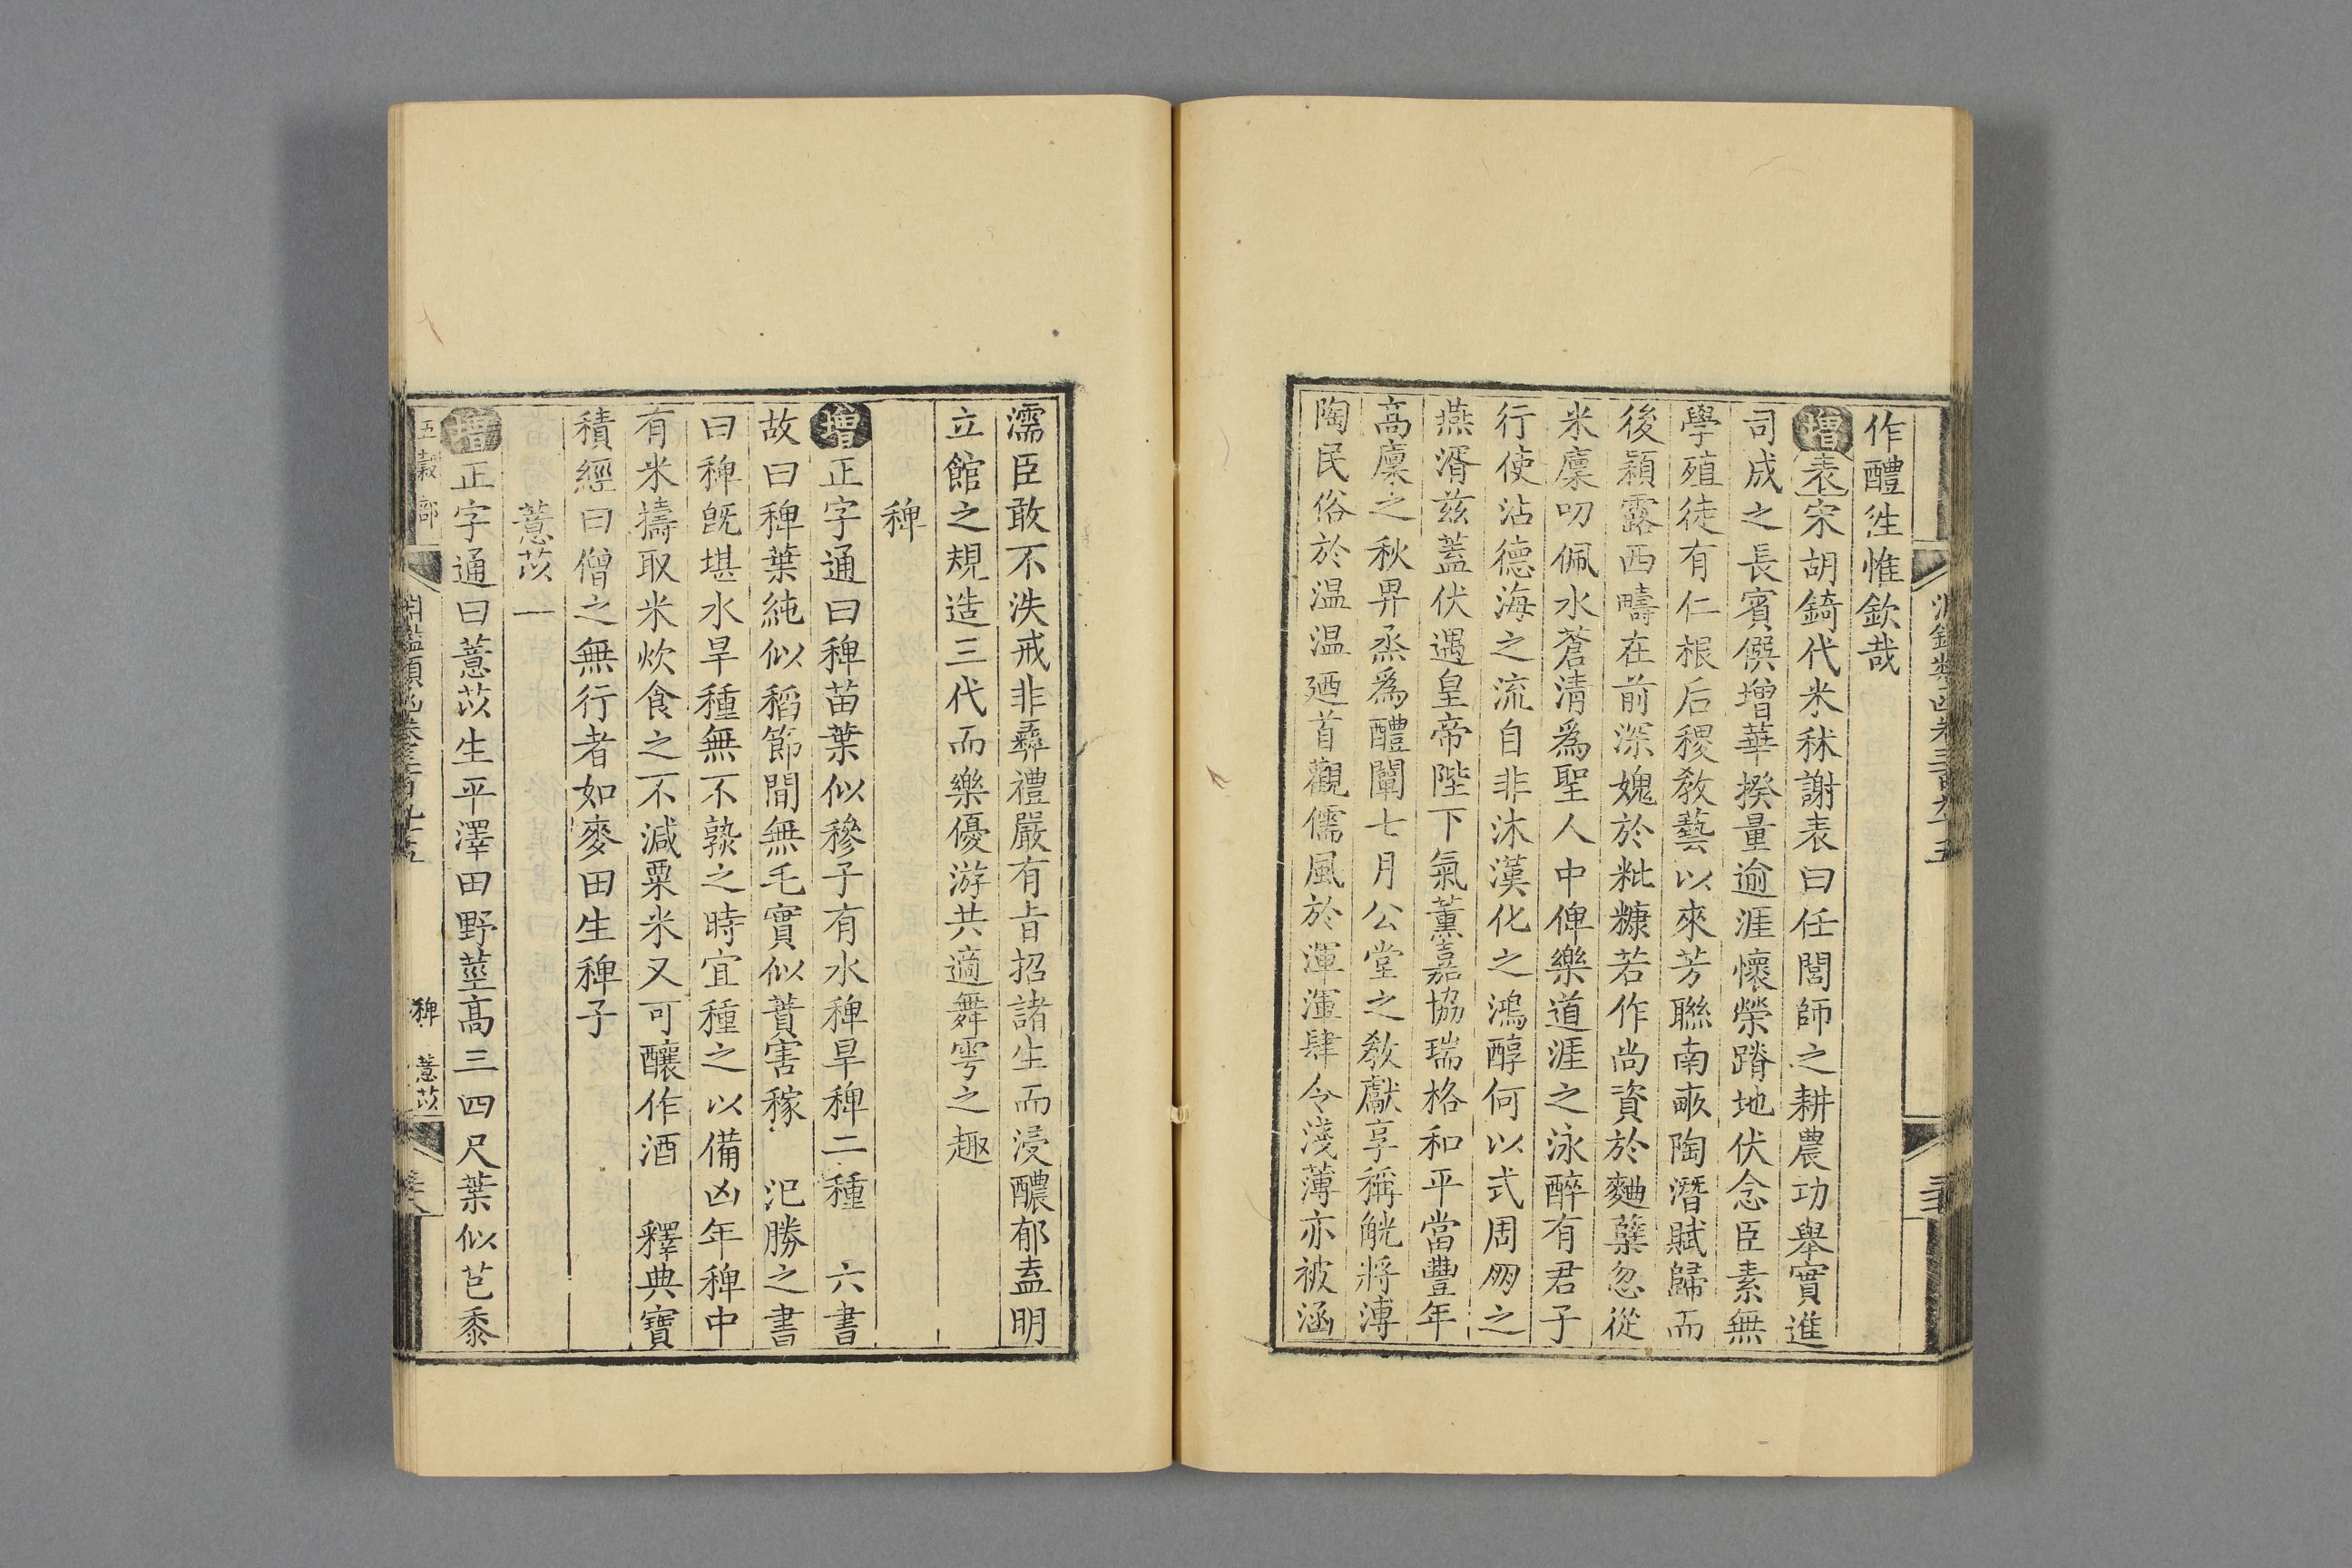 作醴往惟欽哉
增表宋胡錡代米秫謝表曰任閭師之耕農功舉實進
司成之長賓僎增華揆量逾涯懷榮蹐地伏念臣素無
學殖徒有仁根后稷教藝以來芳聯南畝陶潛賦歸而
後穎露西疇在前深媿於粃糠若作尚資於麯蘖忽從
米廩叨佩水蒼清爲聖人中俾樂道涯之泳醉有君子
行使沾德海之流自非沐漢化之鴻醇何以式周朋之
燕湑茲蓋伏遇皇帝陛下氣薰嘉協瑞格和平當豐年
高廩之秋畀烝爲醴闡七月公堂之教獻享稱觥將溥
陶民俗於温温廼首觀儒風於渾渾肆令淺薄亦被涵
濡臣敢不泆戒非彞禮嚴有旨招諸生而浸醲郁盍明
立館之規造三代而樂優游共適舞雩之趣
稗
增正字通曰稗苗葉似穇子有水稗旱稗二種 六書
故曰稗葉純似稻節間無毛實似蕡害稼 氾勝之書
曰稗旣堪水旱種無不孰之時宜種之以備凶年稗中
有米擣取米炊食之不減粟米又可釀作酒 釋典寶
積經曰僧之無行者如麥田生稗子
薏苡一
增正字通曰薏苡生平澤田野莖高三四尺葉似芑黍
五穀部
淵鑑類函卷三百九十五
稗 薏苡